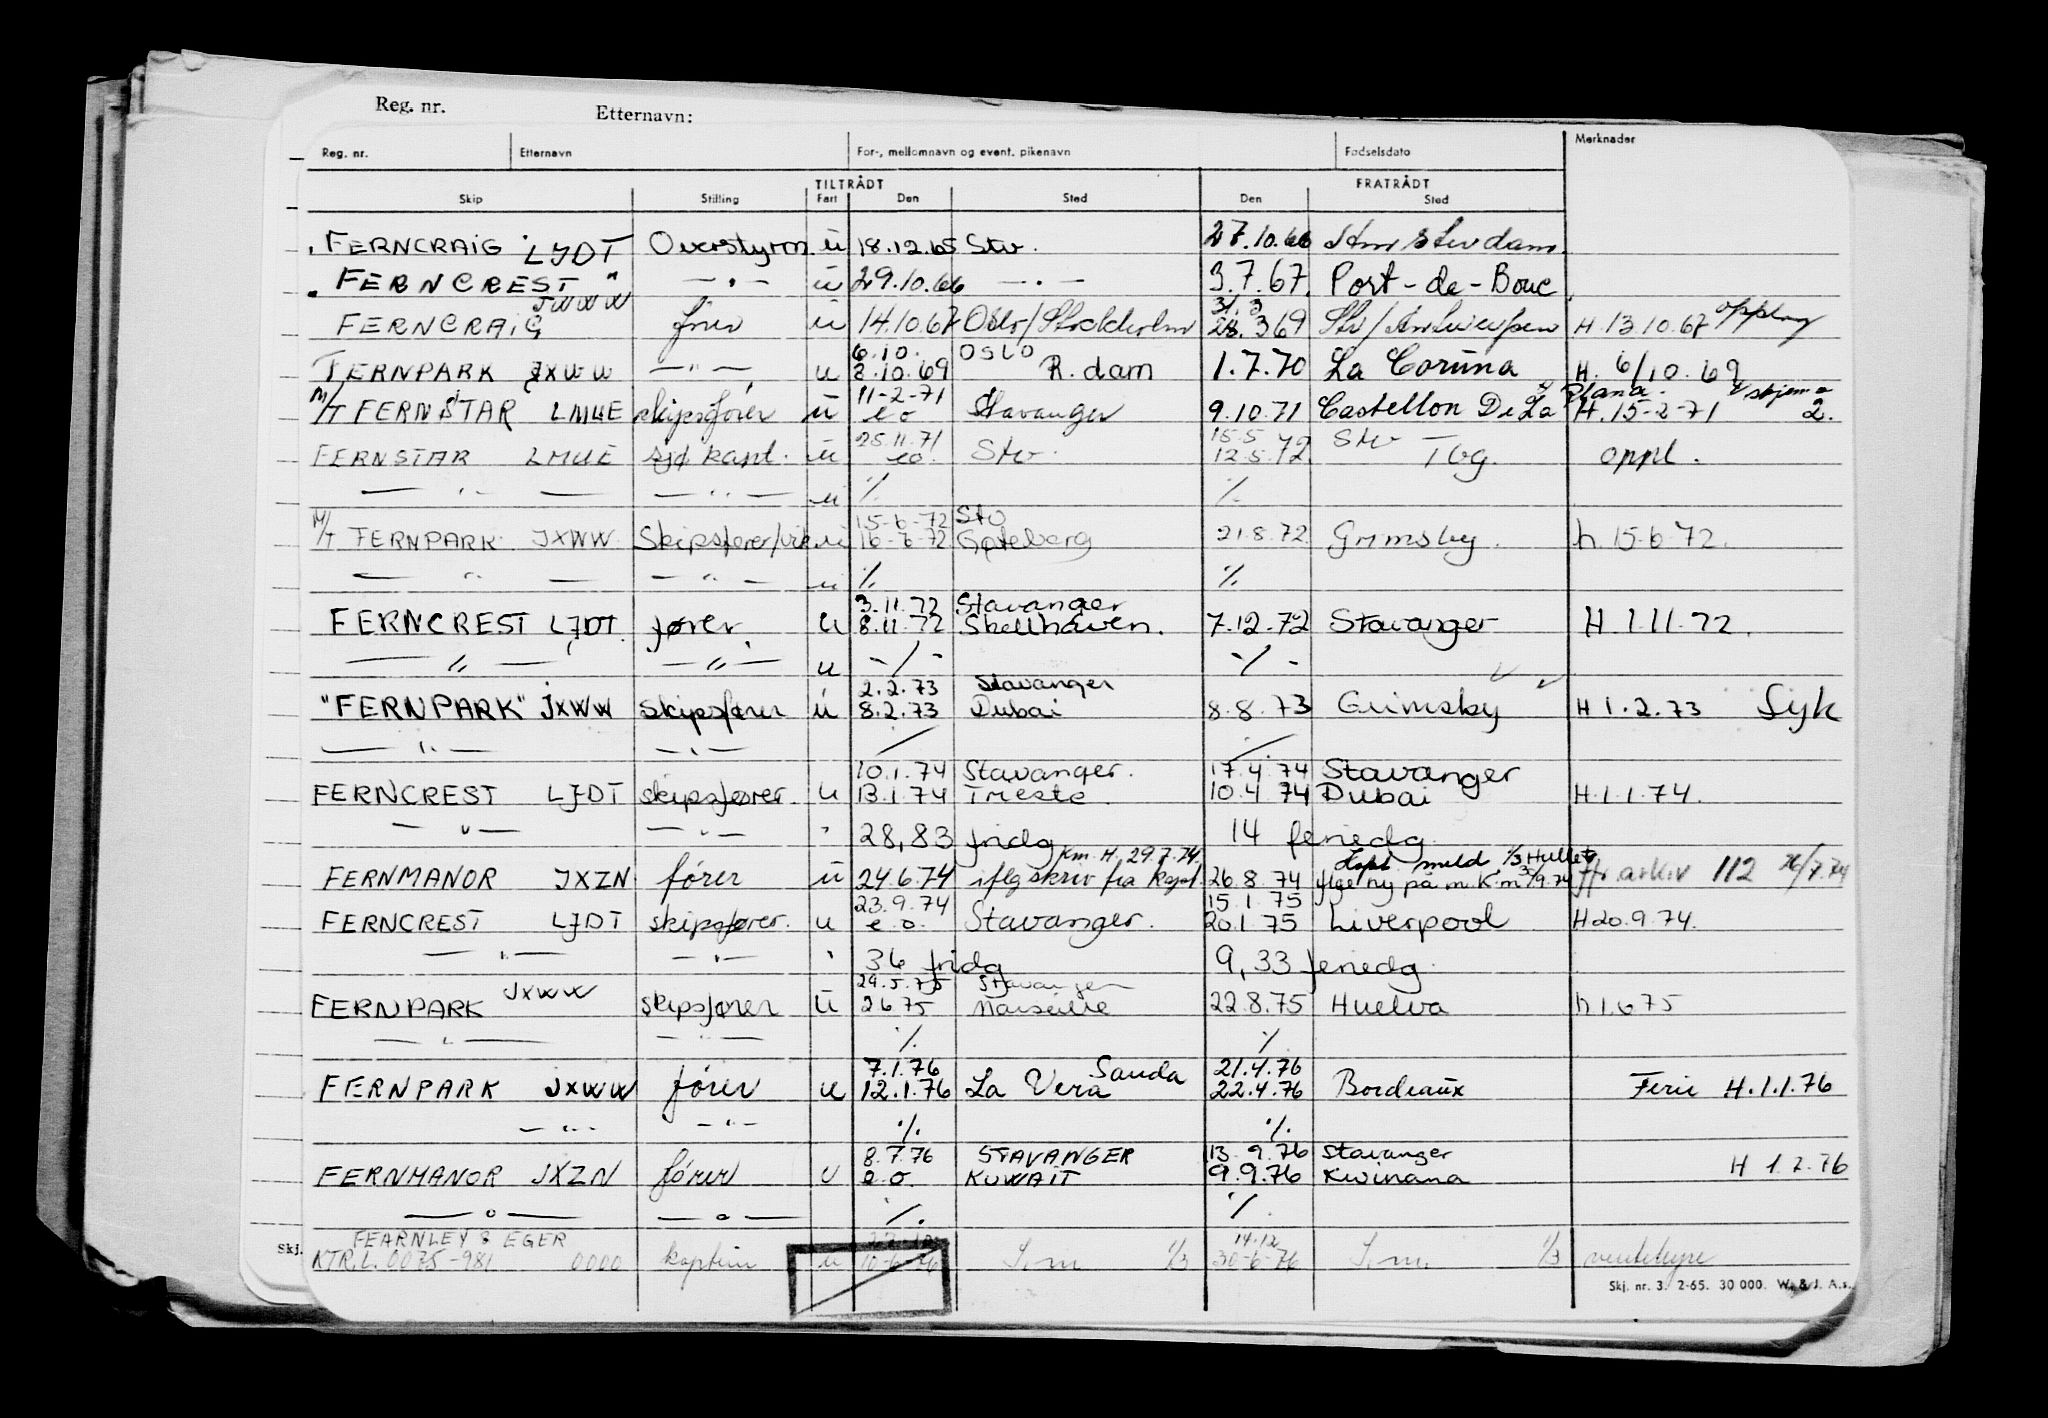 Reg. nr. Etternavn:
Reg. nr. Etternavn For-, mellomnavn og event. pikenavn Fødselsdato Merknader
TILTRÅDT FRATRÅDT
Skip Stilling Fart Den Sted Den Sted
FERNCRAIG LJDT Overstyrm ü 18.12.65 Stv. 27.10.66 Amsterdam
FERNCREST " — " — ü 29.10.66 — " — 3.7.67. Port-de-Bouc
JWWW 31.3
FERNCRAIG fører ü 14.10.67 Oslo/Stockholm 28.369 Stv/Antwerpen H.13.10.67
6.10. OSLO
FERNPARK JXWW — " — u 8.10.69 R.dam 1.7.70 La Coruna H. 6/10.69
11-2-71 Plana
M/T FERNSTAR LMUE skipsfører ü eo Stavanger 9.10.71 Castellon De La H.15-2-71 2.
25.11.71 15.5 Stv
FERNSTAR LMUE sjø kapt. ü eo. Stv. 12.5.72 Tbg. oppl.
— " — — " — u % %
15-6-72 Stv
M/T FERNPARK JXWW Skipsfører/vik. ü 16-6-72 Gøteborg 21.8.72 Grimsby. h.15-6-72.
— " — — " — u % %
3.11.72 Stavanger
FERNCREST LJDT. fører. u 8.11.72 Shellhaven. 7.12.72 Stavanger H.1.11.72.
— " — — " — u -/- -/-
2.2.73 Stavanger
"FERNPARK" JXWW Skipsfører ü 8.2.73 Dubai 8.8.73 Grimsby H 1.2.73 Syk
— " — — " — / /
10.1.74 Stavanger. 17.4.74 Stavanger
FERNCREST LJDT skipsfører. u 13.1.74 Trieste 10.4.74 Dubai H.1.1.74.
— " — — " — " 28,83 fridg 14 feriedg.
Km. H. 29.7.74. meld. 1/3
FERNMANOR JXZN fører ü 24.6.74 iflg skriv fra kapt 26.8.74 arkiv 112 26/7.74
23.9.74 15.1.75
FERNCREST LJDT skipsfører. u e.o. Stavanger. 20.1.75 Liverpool H20.9.74.
— " — — " — " 36 fridg 9,33 feriedg.
29.5.75 Stavanger
FERNPARK JXWW skipsfører ü 2675 Marseille 22.8.75 Huelva h1.675
— " — — " — % %
7.1.76 Sauda 21.4.76
FERNPARK JXWW fører u 12.1.76 La Vera 22.4.76 Bordeaux Ferie H.1.1.76
— " — — " — % %
8.7.76 STAVANGER 13.9.76 Stavanger
FERNMANOR JXZN fører u e.o. KUWAIT 9.9.76 Kwinana H 1.7.76
— " — — " — %. %.
FEARNLEY & EGER 14.12
Skj. KTR.L. 0075-981 0000 kaptein u 10-6-76 S.m 1/3 30-6-76 S.m. 1/3 ventehyre
Skj. nr. 3. 2-65. 30 000. W. & J. A.s.